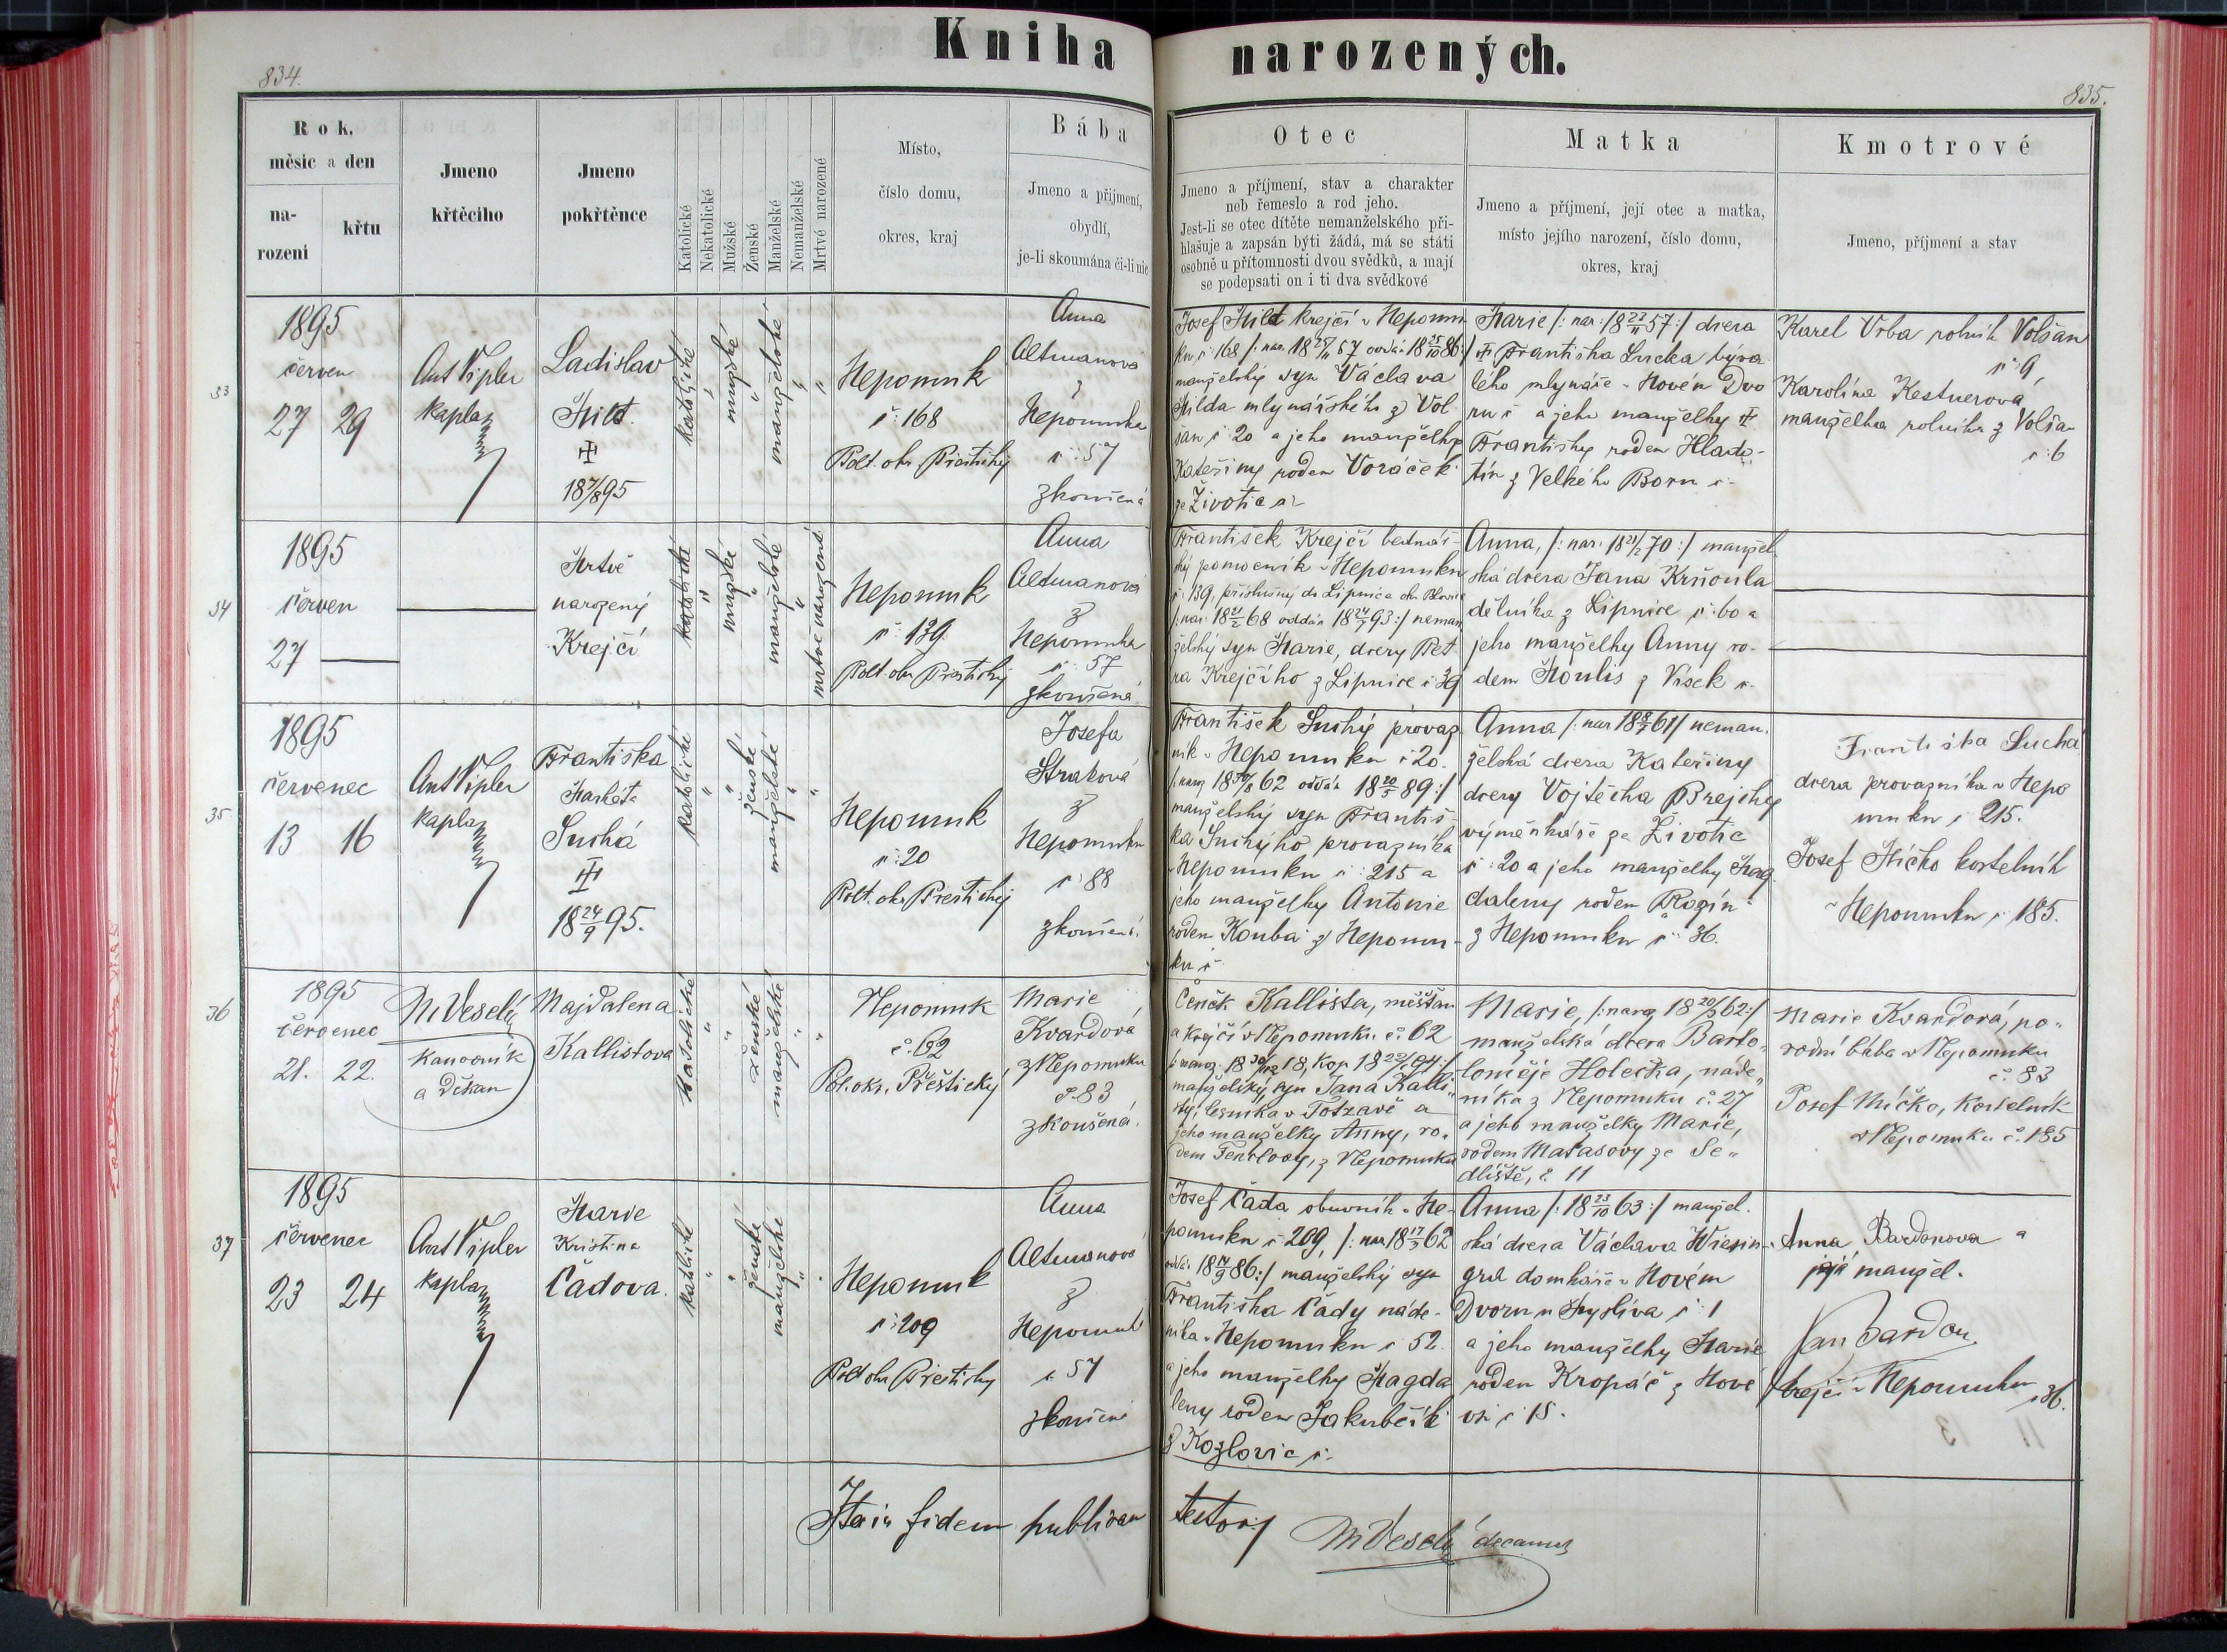 Kniha narozených.
834.
835.
Rok, měsíc a den
na-
rození
křtu
Jmeno
křtěcího
Jmeno
pokřtěnce
Katolické
Nekatolické
Mužské
Ženské
Manželské
Nemanželské
Mrtvé narozené
Místo,
číslo domu,
okres, kraj
Bába
Jmeno a přijmení,
obydlí,
je-li skoumána či-li nic
Otec
Jmeno a příjmení, stav a charakter
neb řemeslo a rod jeho.
Jest-li se otec dítěte nemanželského při-
hlašuje a zapsán býti žádá, má se státi
osobně u přítomnosti dvou svědků, a mají
se podepsati on i ti dva svědkové
Matka
Jmeno a příjmení, její otec a matka,
místo jejího narození, číslo domu,
okres, kraj
Kmotrové
Jmeno, příjmení a stav
33
1895
červen
27 29
Ant Vipler
kaplan
Ladislav
18 7/8 95
katolické
mužské
manželské
Nepomuk
č: 168
Polt. okr. Přeštický
Anna
Altmanová
z
Nepomuka
č: 57
zkoušená
Josef
krejčí v Nepomu-
ku č: 168
manželský syn Václava
mlynářského z Vol-
šan č 20 a jeho manželky
Kateřiny rodem Voráček
ze Životic č:
Marie /: nar: 18 23/11 57 :/ dcera
Františka
býva-
lého mlynáře v Novém Dvo-
ru č a jeho manželky
Františky rodem
z Velkého Boru č:
Karel Vrba rolník Volšan
č: 9,
Karolína Kestnerová
manželka rolníka z Volšan
č: 6
34
1895
červen
27
Mrtvě
narozený
Krejčí
katolické
mužské
manželské
mrtvě narozené
Nepomuk
č: 139
Polt. okr. Přeštický
Anna
Altmanová
z
Nepomuka
č: 57
zkoušená
František Krejčí bednář-
ský pomocník v Nepomuku
č: 139, příslušný do Lipnice okr.
/: nar: 18 21/2 68 oddán 18 24/7 93 :/ neman-
želský syn Marie, dcery Pet-
ra Krejčího z Lipnice č 39
Anna, /: nar: 18 21/2 70 :/ manžel-
ská dcera Jana Krňoula
dělníka z Lipnice č: 60 a
jeho manželky Anny ro-
dem Moulis z Vísek č.
35
1895
červenec
13 16
Ant Vipler
kaplan
Františka
Markéta
Suchá
18 24/9 95.
katolické
ženské
manželské
Nepomuk
č: 20
Polt. okr. Přeštický
Josefa
Straková
z
Nepomuku
č: 88
zkoušená
František Suchý provaz-
ník v Nepomuku č 20.
62 oddán 18 20/5 89 :/
manželský syn Františ-
ka Suchýho provazníka
v Nepomuku č: 215 a
jeho manželky Antonie
rodem Kouba z Nepomu-
ku č
Anna /: nar 18
61 / neman-
želská dcera Kateřiny
dcery Vojtěcha Brejchy
výměnkáře ze Životic
č: 20 a jeho manželky Mag-
daleny rodem
z Nepomuku č: 36.
Františka Suchá
dcera provazníka v Nepo-
muku č 215.
Josef Mičko kostelník
v Nepomuku č 185.
36
1895
červenec
21. 22.
M Veselý
kanovník
a děkan
Majdalena
Kallistova
Katolické
ženské
manželské
Nepomuk
č. 62
Pol. okr. Přeštický
Marie
Kvardová
z Nepomuku
č. 83
zkoušená.
Čeněk Kallista, měšťan
a krejčí v Nepomuku č. 62
manželský syn Jana Kalli-
sty, lesníka v
a
jeho manželky Anny, ro-
dem
z Nepomuku
Marie, /: naroz 18 20/3 62 :/
manželská dcera Barto-
loměje Holečka, náde-
níka z Nepomuku č. 27
a jeho manželky Marie,
rodem Matasovy ze Se-
dliště, č. 11
Marie Kvardová, po-
rodní bába v Nepomuku
č. 83
Josef Mičko, kostelník
v Nepomuku č. 185
37
1895
červenec
23 24
Ant Vipler
kaplan
Marie
Kristina
Čadova.
katolické
ženské
manželské
Nepomuk
č: 209
Polt okr. Přeštický
Anna
Altmanová
z
Nepomuk
č 57
zkoušená
Josef Čada obuvník v Ne-
pomuku č 209, /: nar 18 17/3 62
oddán 18 14/9 86 :/ manželský syn
Františka Čady náde-
níka v Nepomuku č 52.
a jeho manželky Magda-
leny rodem Jakubčík
z Kozlovic č:
Anna /: 18 23/10 63 :/ manžel-
ská dcera Václava Wiesin-
gra domkáře v Novém
Dvoru u Myslíva č: 1
a jeho manželky Marie
rodem Kropáč z Nové
vsi č 15.
Anna Bardonova a
její manžel.
Jan Bardon
krejčí v Nepomuku č 36.
Ita in fidem publicam testor:/
M Veselý decanus